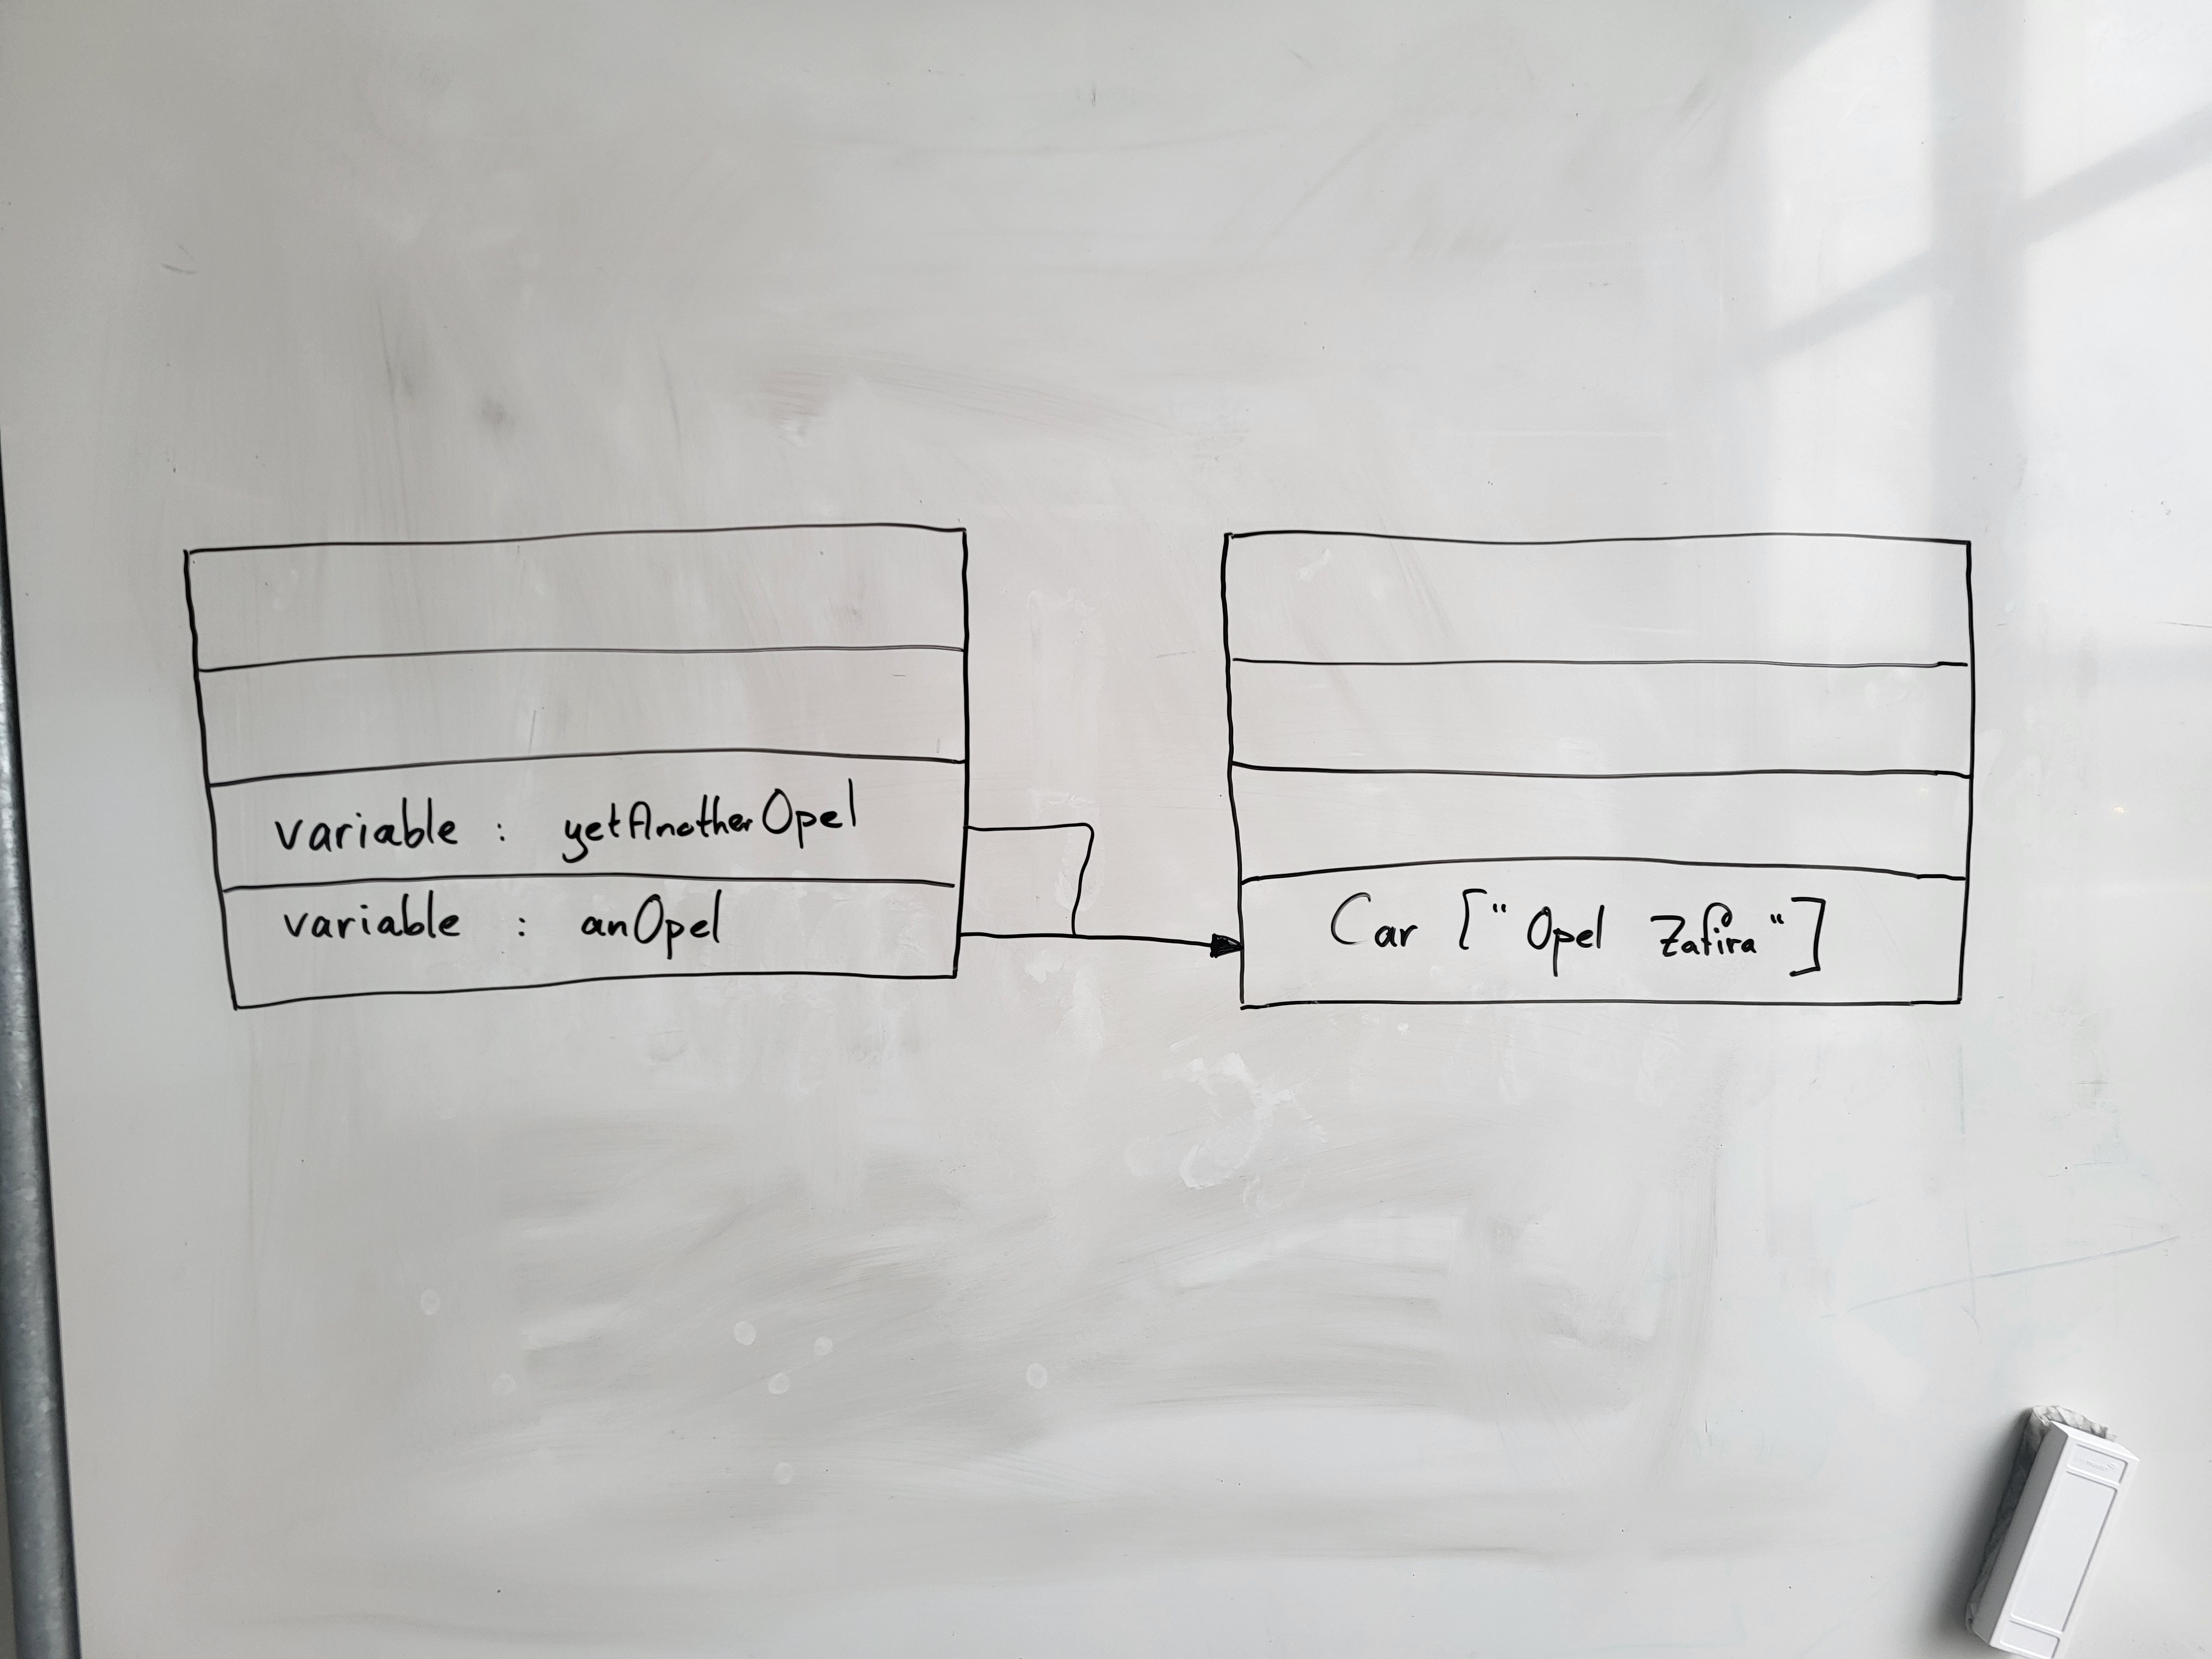 variable : yetAnotherOpel
variable : anOpel
Car ["Opel Zafira"]